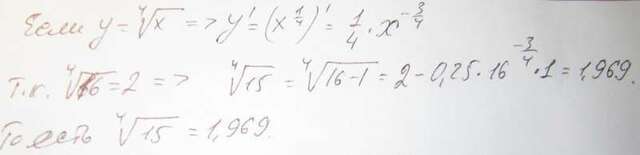 Если y = ⁴√x => y' = (x^(1/4))' = 1/4 · x^(-3/4)
Т.к. ⁴√16 = 2 => ⁴√15 = ⁴√(16-1) = 2 - 0,25 · 16^(-3/4) · 1 = 1,969.
То есть ⁴√15 = 1,969.